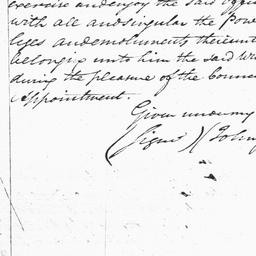 exercise and enjoy the said Offi
with all and singular the Powe
leges and emoluments thereunt
belonging unto him the said W
during the pleasure of the
Appointment.
Given under my
(Signed) (John